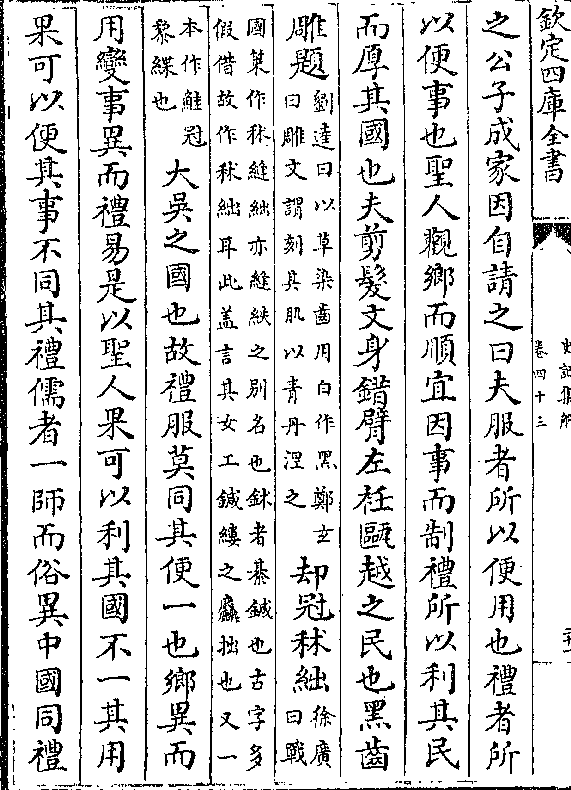 欽定四庫全書
史記集解
卷四十三
之公子成家因自請之曰夫服者所以便用也禮者所
以便事也聖人觀鄉而順宜因事而制禮所以利其民
而厚其國也夫剪髮文身錯臂左衽甌越之民也黑齒
雕題劉逵曰以草染齒用白作黑鄭玄曰雕文謂刻其肌以青丹涅之却冠秫絀徐廣曰戰
國策作秫縫絀亦縫紩之别名也鉥者綦鍼也古字多假借故作秫絀耳此蓋言其女工鍼縷之麤拙也又一
本作鮭冠黎緤也大吳之國也故禮服莫同其便一也鄉異而
用變事異而禮易是以聖人果可以利其國不一其用
果可以便其事不同其禮儒者一師而俗異中國同禮